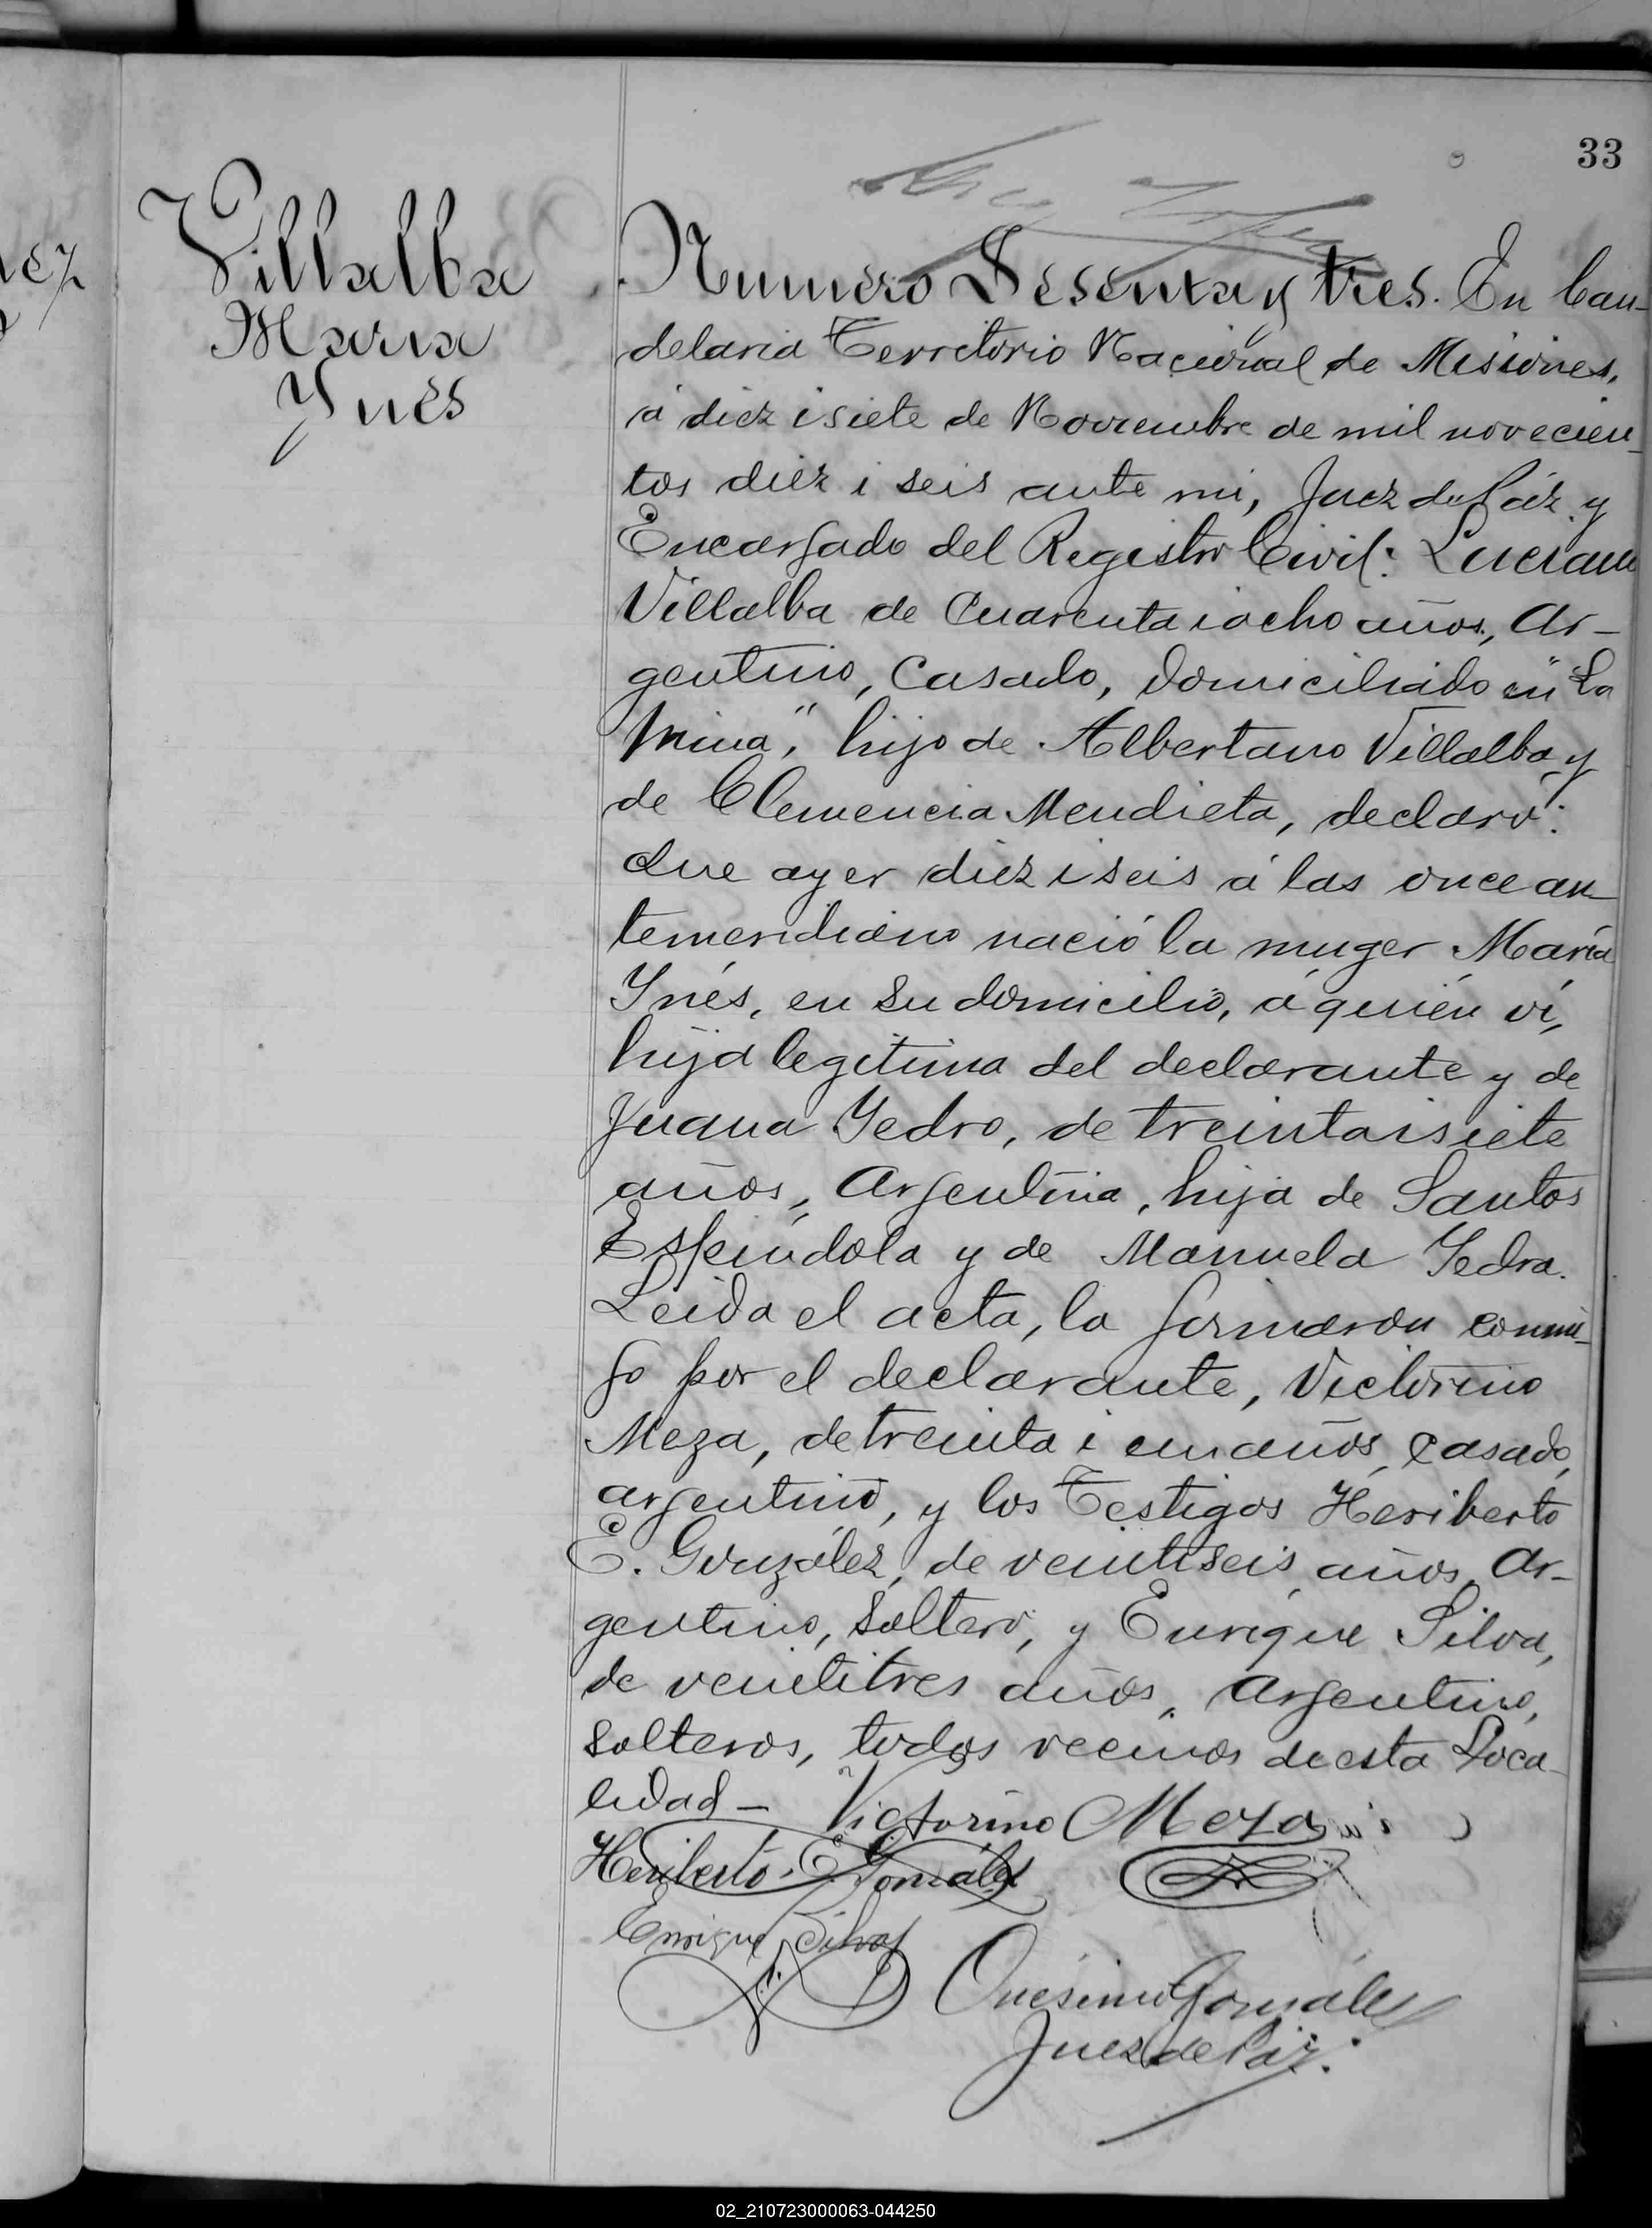 33
Villalba
Maria
Ynés
Numero Sesenta y tres. En Can-
delaria Territorio Nacional de Misiones,
á diez i siete de Noviembre de mil novecien-
tos diez i seis ante mi, Juez de Páz y
Encargado del Registro Civil: Luciano
Villalba de cuarenta i ocho años, Ar-
gentino, casado, domiciliado en "La
Mina", hijo de Albertano Villalba y
de Clemencia Mendieta, declaró:
Que ayer diez i seis á las once an-
temeridiano nació la muger María
Ynés, en su domicilio, á quién ví,
hija legitima del declarante y de
Juana Yedro, de treinta i siete
años, Argentina, hija de Santos
Espíndola y de Manuela Yedra.
Leida el acta, la firmaron conmi-
go por el declarante, Victorino
Meza, de treinta i un años, casado,
argentino, y los Testigos Heriberto
E. González, de veintiseis años, Ar-
gentino, soltero, y Enrique Silva,
de veintitres años, Argentino,
solteros, todos vecinos de esta Loca-
lidad—
Victorino Meza
Heriberto E. González
Enrique Silva
Onésimo González
Juez de Páz.
02_210723000063-044250